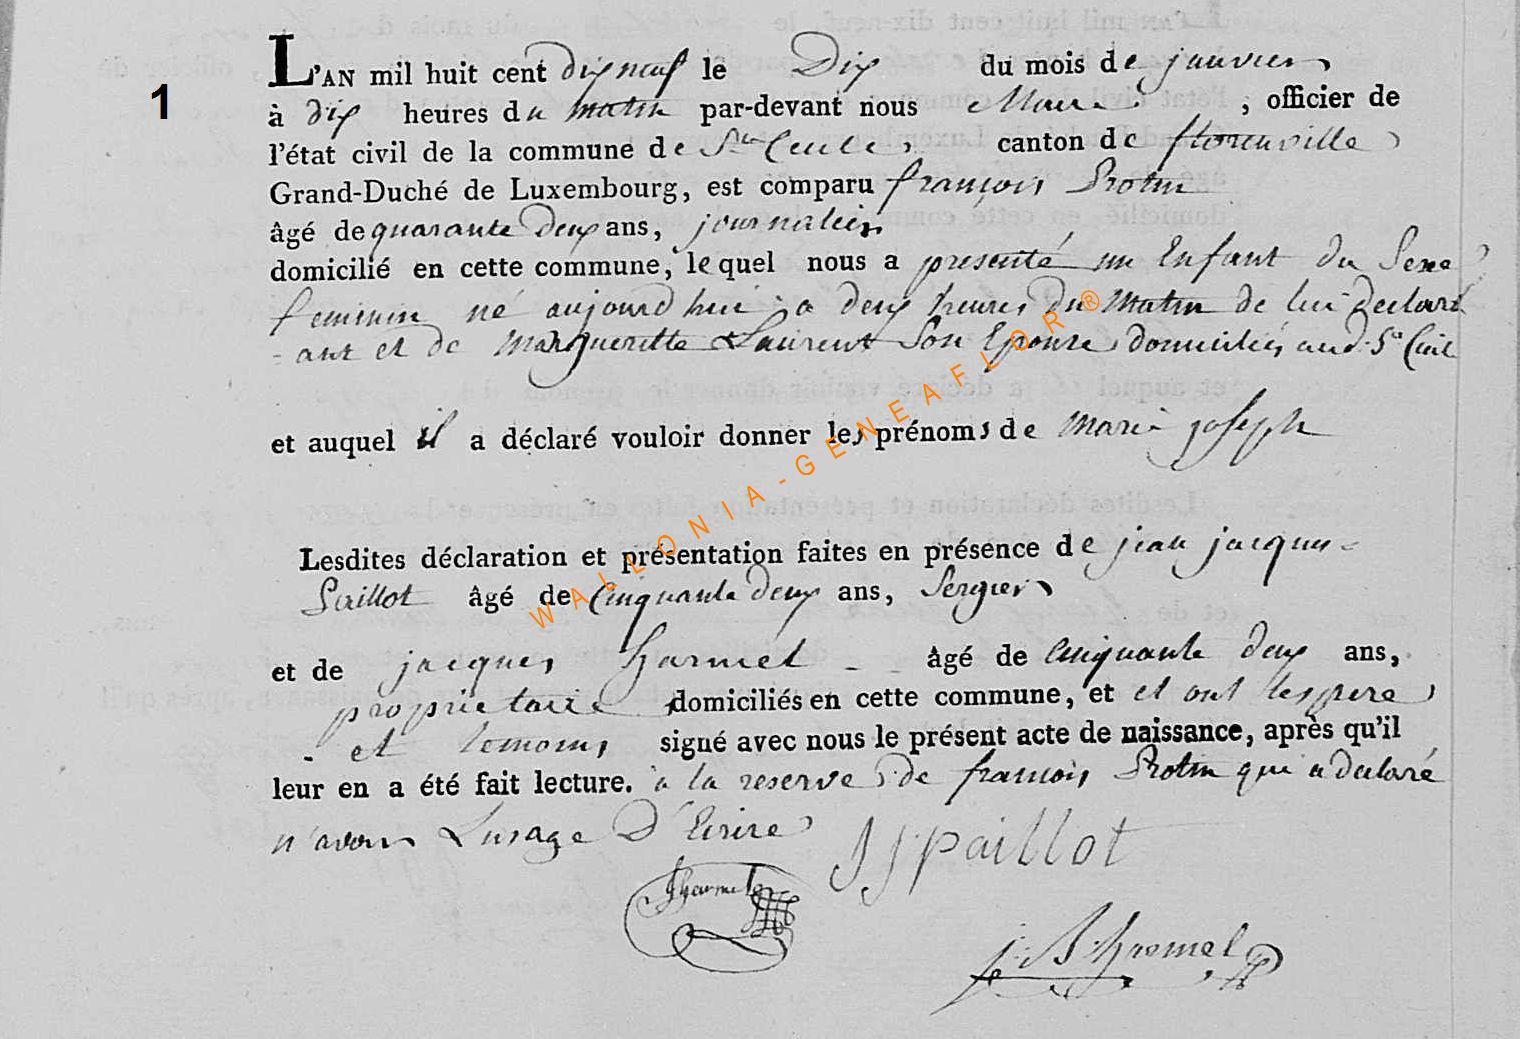 1
L'AN mil huit cent dix neuf le Dix du mois de janvier
à dix heures du matin par-devant nous Maire, officier de
l'état civil de la commune de Ste Cecile, canton de florenville
Grand-Duché de Luxembourg, est comparu françois Protin
âgé de quarante deux ans, journalier
domicilié en cette commune, lequel nous a presenté un Enfant du Sexe
feminin né aujourd'hui a deux heures du matin de lui declar
=ant et de Margueritte Laurent Son Epouse domiciliés aud. Ste Cecile
et auquel il a déclaré vouloir donner les prénoms de Marie joseph
Lesdites déclaration et présentation faites en présence de jean jacques
Paillot âgé de Cinquante deux ans, Sergier
et de jacques harmel âgé de Cinquante deux ans,
proprietaire domiciliés en cette commune, et et ont les pere
et temoins signé avec nous le présent acte de naissance, après qu'il
leur en a été fait lecture. à la reserve de francois Protin qui a declaré
n'avoir L'usage D'Ecrire
JJ paillot
J harmel
WALLONIA-GENEAFLOR®